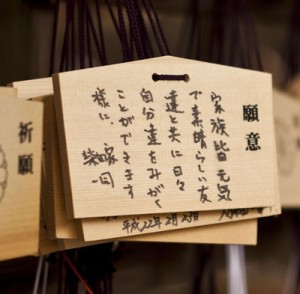 願意
家族皆元気
で素晴らしい友
達と共に日々
自分達をみがく
ことができます
様に、
家一同
平成22年2月23日
祈願